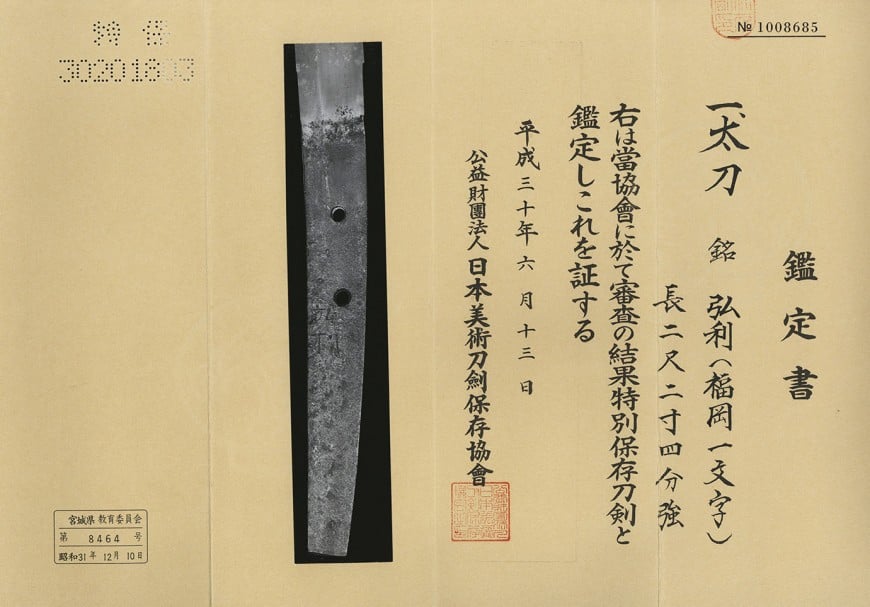 № 1008685
鑑定書
一、太刀 銘 弘利(福岡一文字)
長二尺二寸四分強
右は當協會に於て審査の結果特別保存刀剣と
鑑定しこれを証する
平成三十年六月十三日
公益財團法人 日本美術刀劍保存協會
弘利
特保
30201803
宮城県教育委員会
第 8464 号
昭和31年 12月 10日